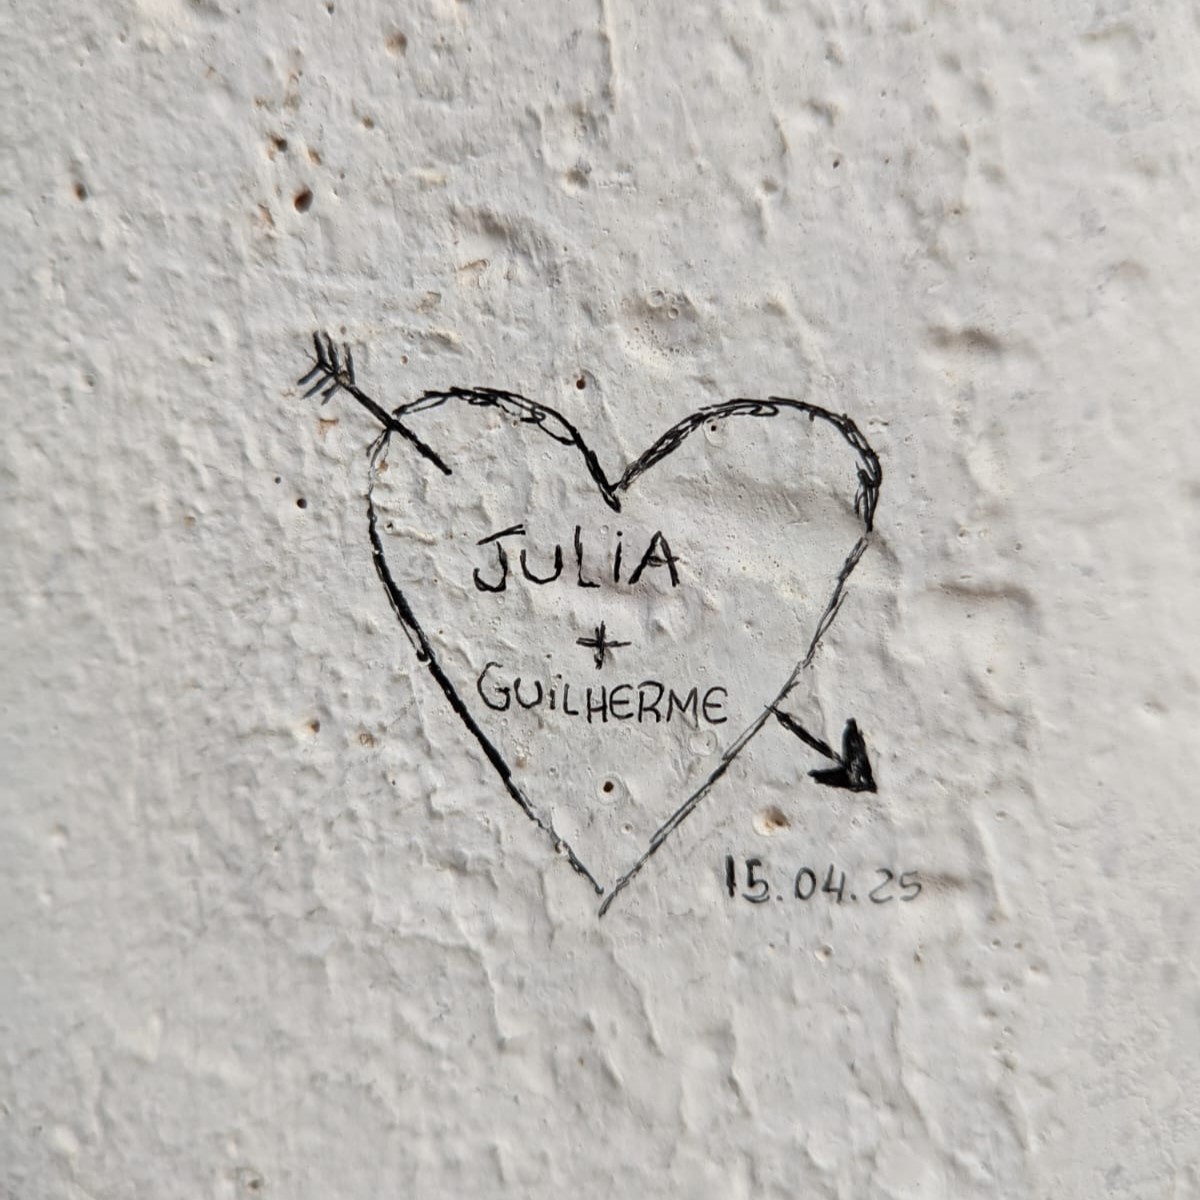 JULiA
+
GUiLHERME
15.04.25